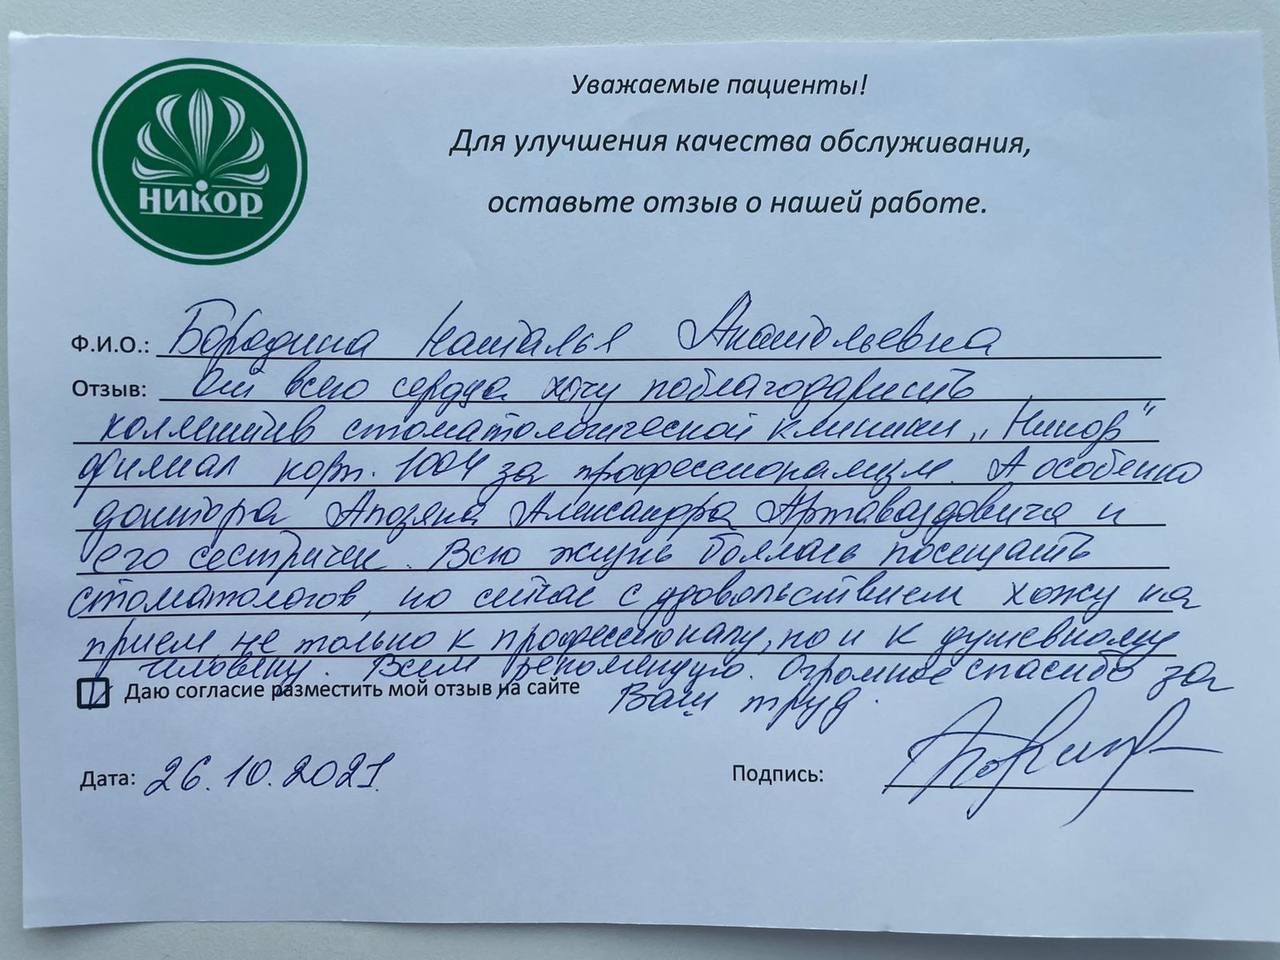 НИКОР
Уважаемые пациенты!
Для улучшения качества обслуживания,
оставьте отзыв о нашей работе.
Ф.И.О.: Бородина Наталья Анатольевна
Отзыв: От всего сердца хочу поблагодарить
коллектив стоматологической клиники „Никор"
филиал корп. 1004 за профессионализм. А особенно
доктора Апозяна Александра Артаваздовича и
его сестричек. Всю жизнь боялась посещать
стоматологов, но сейчас с удовольствием хожу на
прием не только к профессионалу, но и к душевному
человеку. Всем рекомендую. Огромное спасибо за
Ваш труд.
Даю согласие разместить мой отзыв на сайте
Дата: 26.10.2021
Подпись: